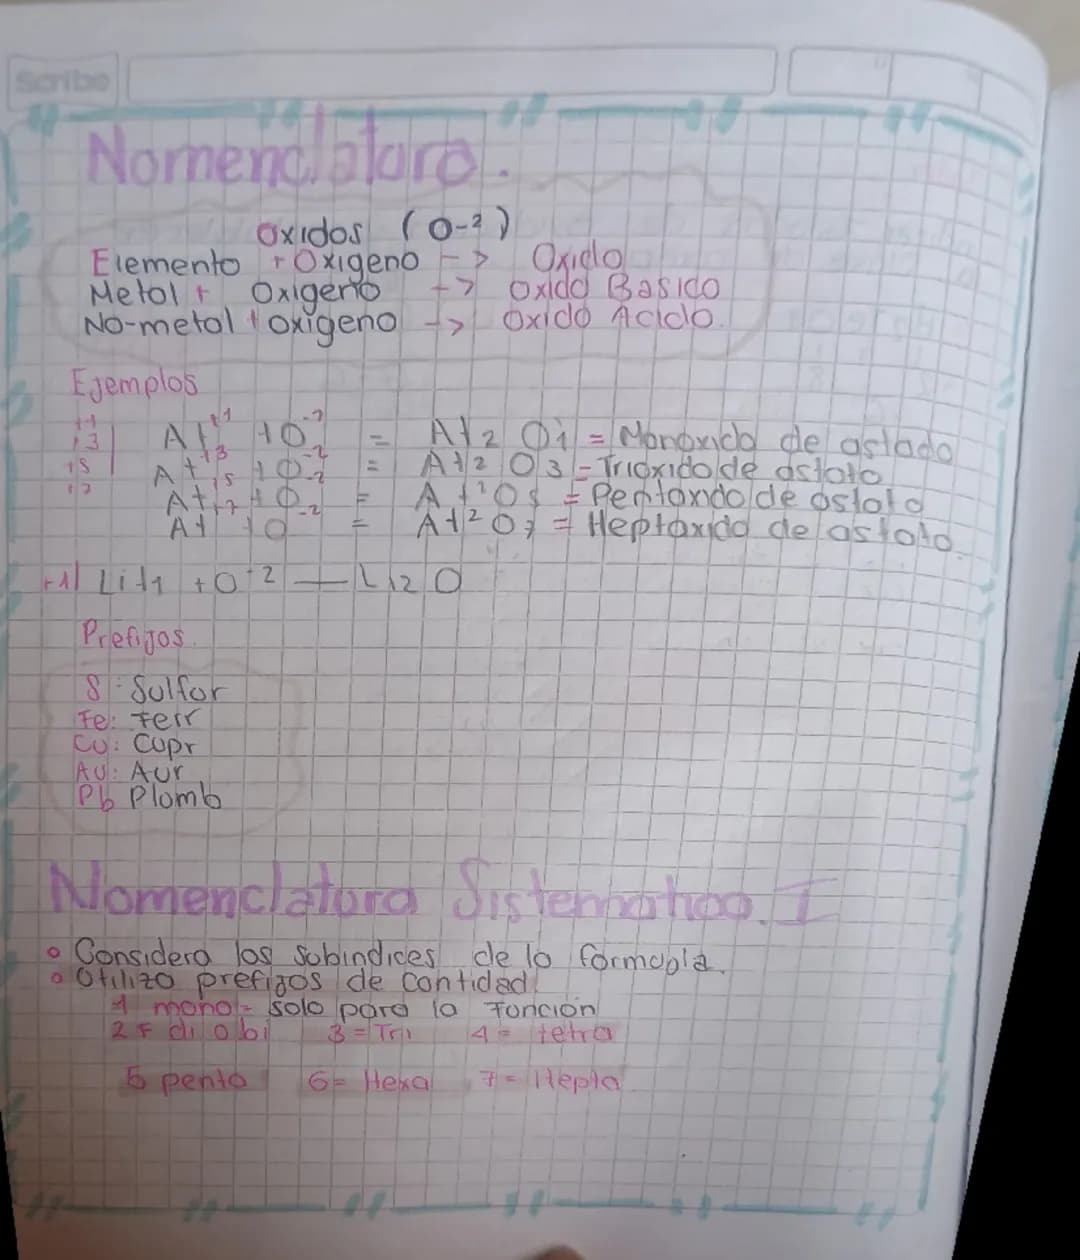 Scribe
Nomenclatura.
Oxidos (O-²)
Elemento + Oxigeno -> Oxido
Metal + Oxigeno -> Oxido Basico
No-metal + oxigeno -> Oxido Acido.
Ejemplos
+1 At+1 +O-2 = At2 O1 = Monoxido de astado
+3 At+3 +O-2 = At2 O3 - Trioxido de astato
+5 At+5 +O-2 = At²O5 = Pentoxido de astato
+7 At+7 +O-2 = At²O7 = Heptoxido de astato.
+1| Li+1 + O-2 — Li2O
Prefijos.
S: Sulfur
Fe: Ferr
Cu: Cupr
Au: Aur
Pb Plomb
Nomenclatura Sistematica. I
o Considera los subindices de la formaula.
o Utiliza prefijos de cantidad
1 mono = solo para la Función
2 = di o bi 3 = Tri 4 = tetra
5 penta 6 = Hexa 7 = Hepta